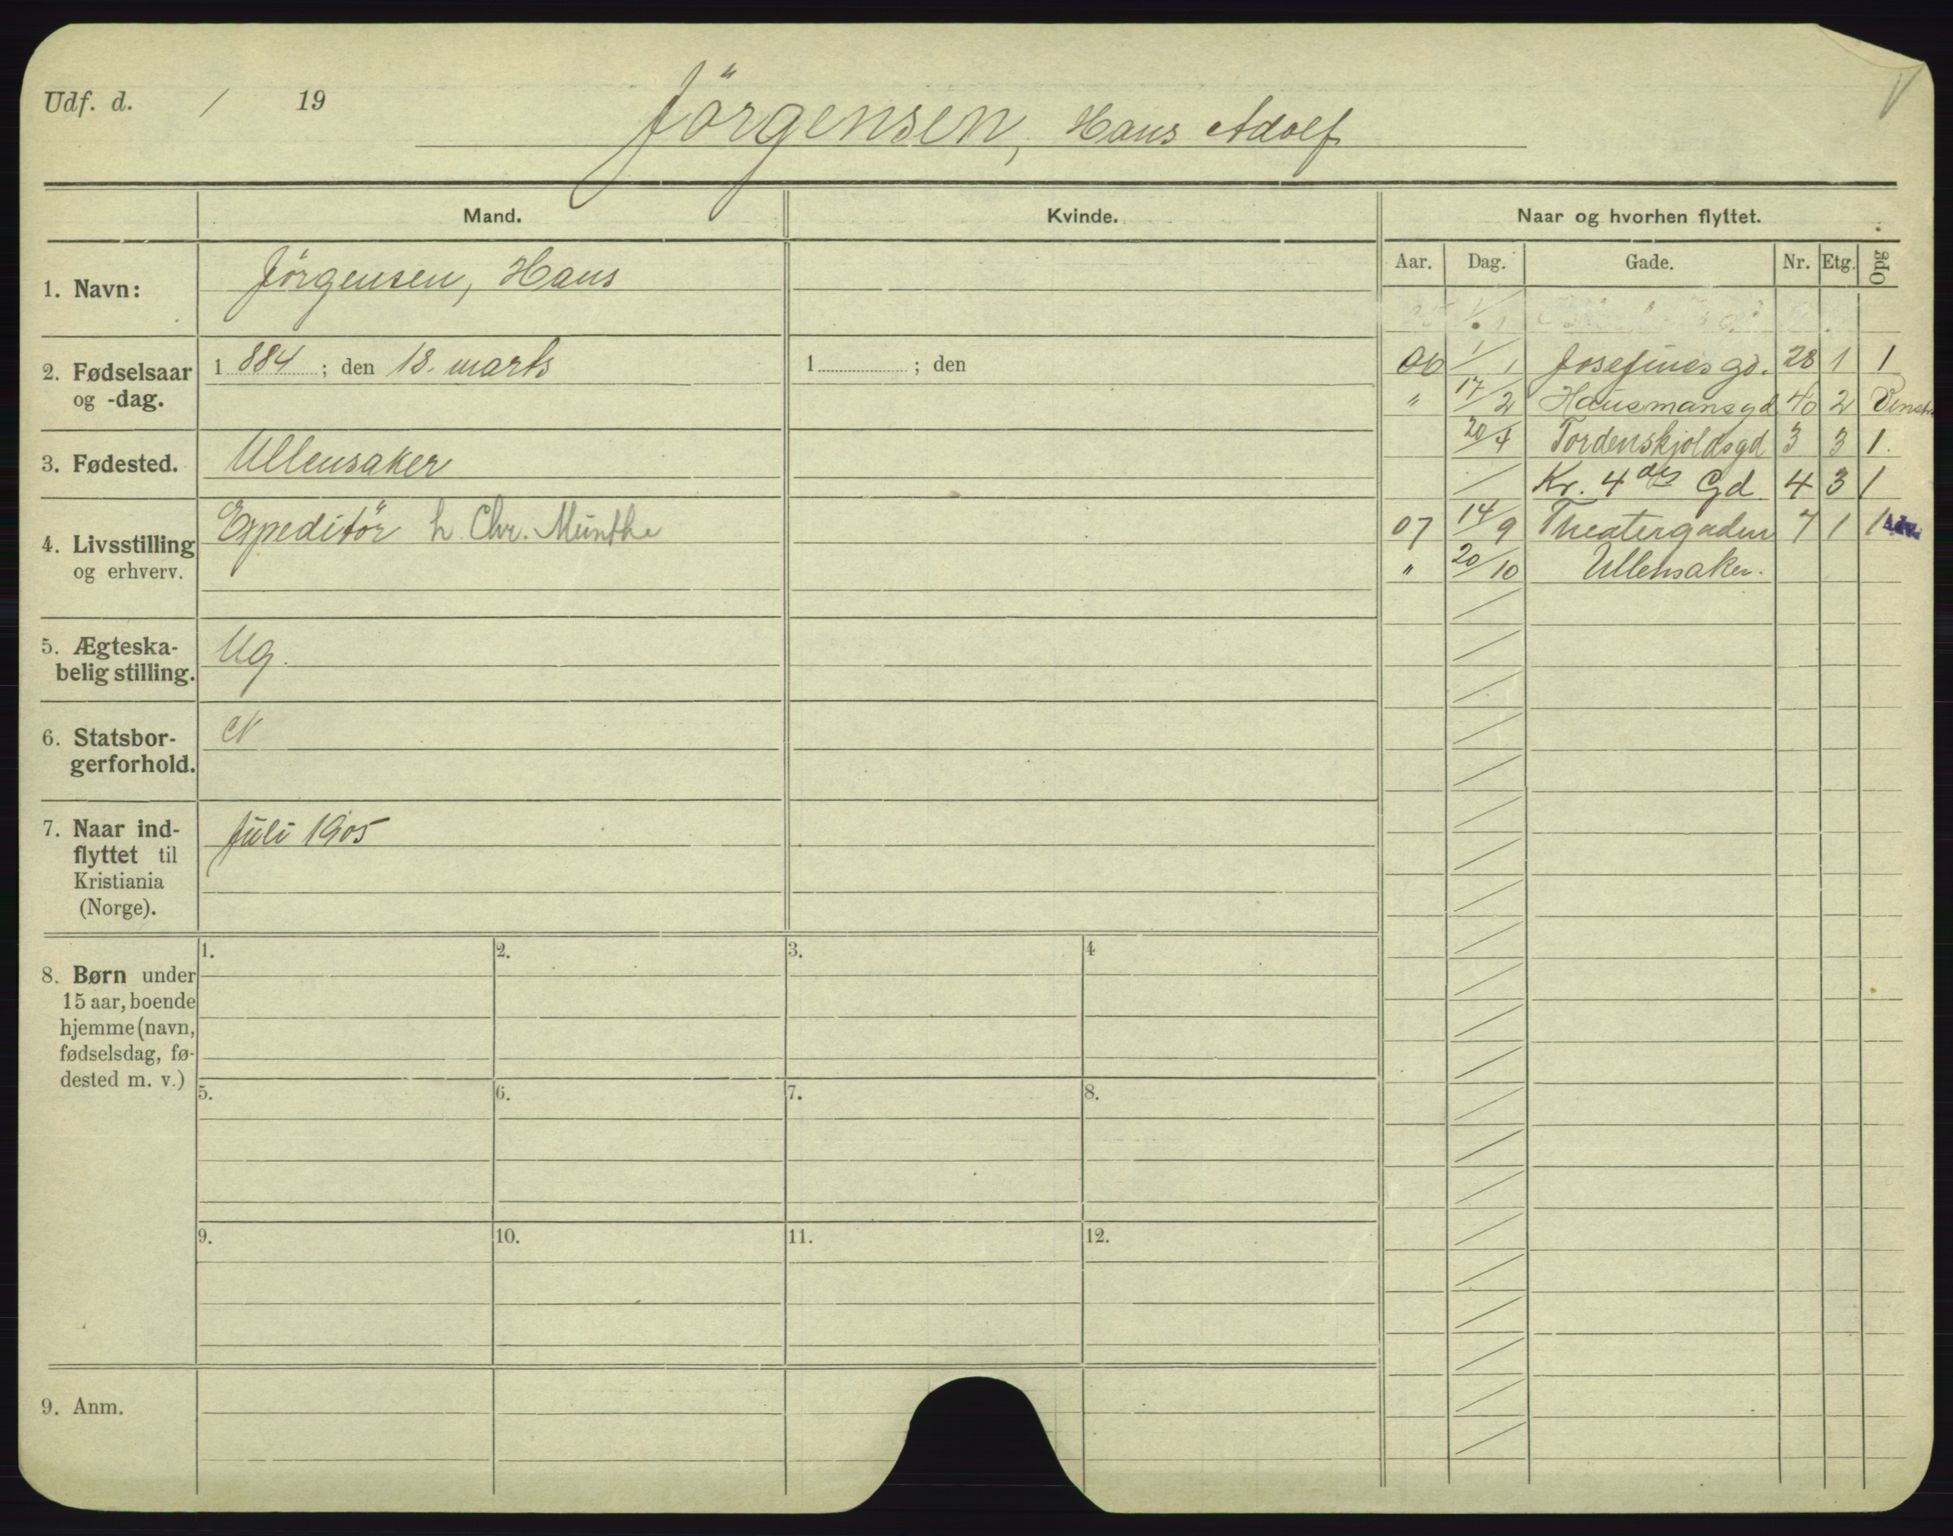 Udf. d. / 19
Jörgensen, Hans Adolf
Mand. Kvinde. Naar og hvorhen flyttet.
Aar. Dag. Gade. Nr. Etg. Opg
1. Navn: Jörgensen, Hans
2. Fødselsaar og -dag. 1 884 ; den 18. marts 1 ; den
3. Fødested. Ullensaker
4. Livsstilling og erhverv. Expeditör h. Chr. Münthe
5. Ægteska-
belig stilling. Ug.
6. Statsbor-
gerforhold. N
7. Naar ind-
flyttet til
Kristiania
(Norge). Juli 1905
06 1/1 Josefines gd. 28 1 1
" 17/2 Hausmansgd 40 2
20/4 Tordenskjoldsgd 3 3 1.
/ Kr. 4des Gd 4 3 1
07 14/9 Theatergaden 7 1 1
" 20/10 Ullensaker.
8. Børn under
15 aar, boende
hjemme (navn,
fødselsdag, fø-
dested m. v.)
1. 2. 3. 4
5. 6. 7. 8.
9. 10. 11. 12.
9. Anm.